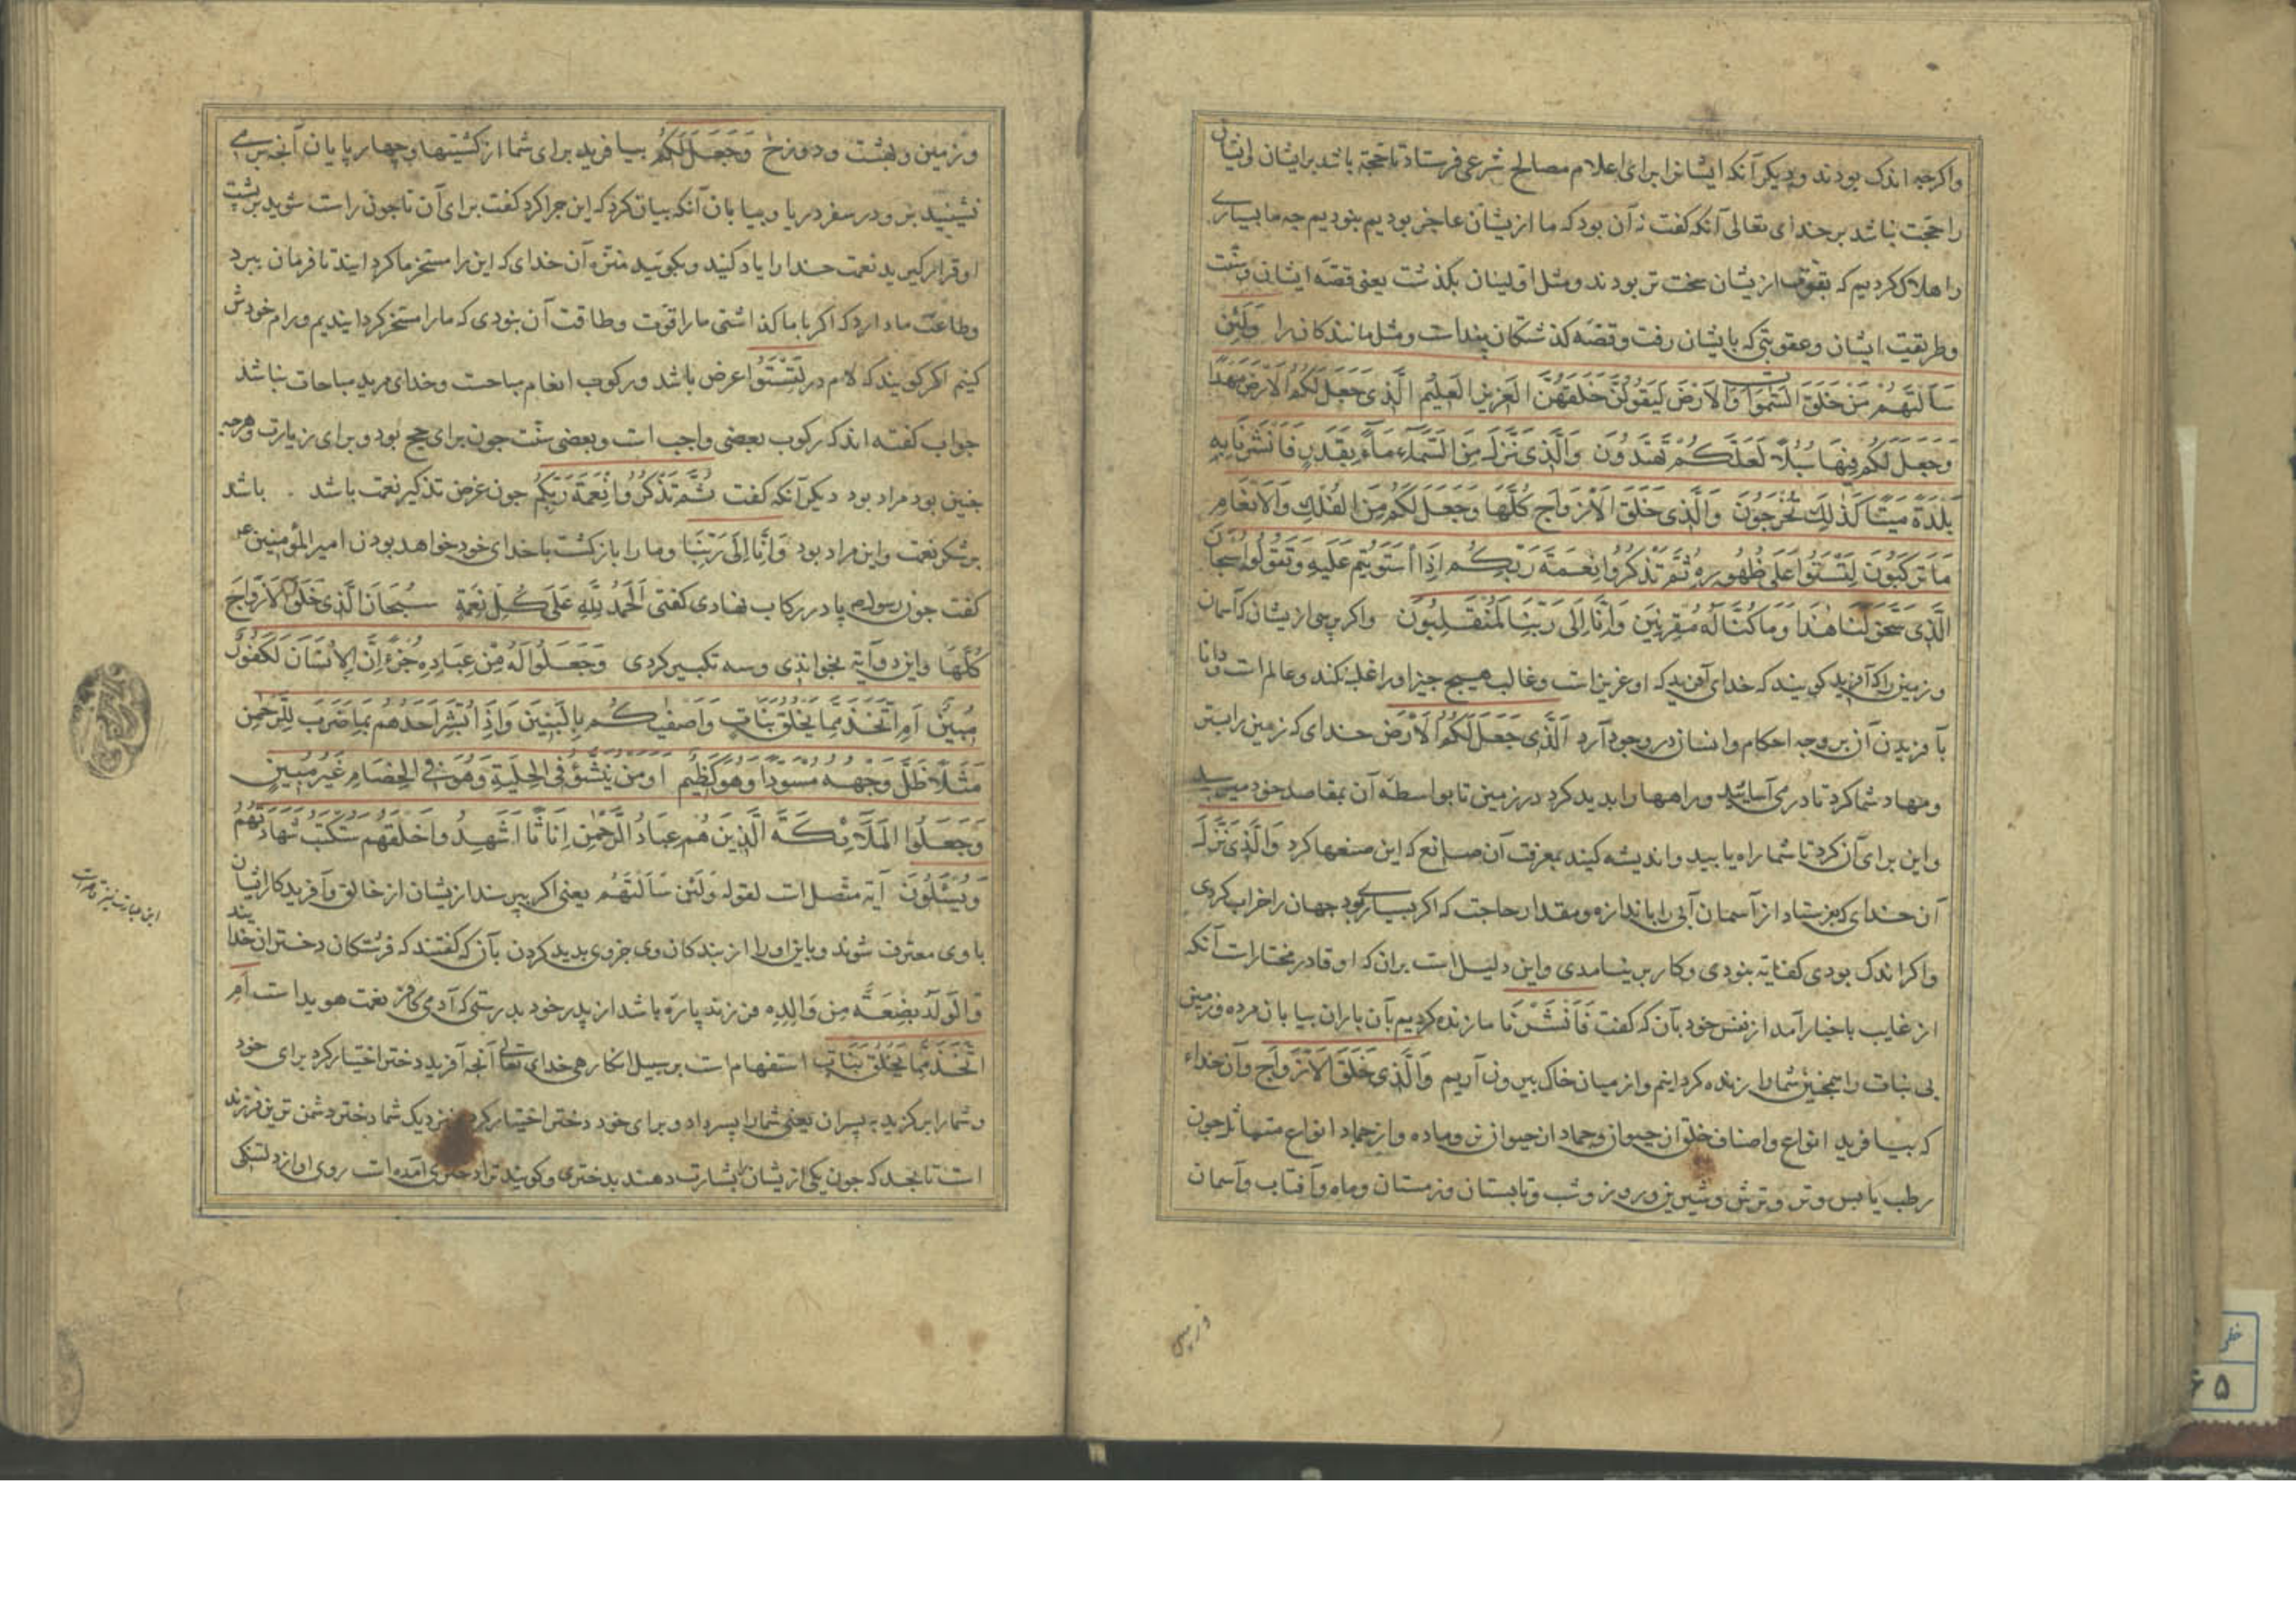 واکرچه اندک بودند و دیکر آنکه ایشانرا برای اعلام مصالح شرعی فرستاد تا حجة باشد برایشان و ایشان
را حجت نباشد بر خدای تعالی آنکه کفت نه آن بود که ما ازیشان عاجز بودیم بنودیم چه ما بسیاری
را هلاک کردیم که بقوت ازیشان سخت تر بودند ومثل اولینان بکذشت یعنی قصه ایشان وسنت
وطریقیت ایشان وعقوبتی که بایشان رفت وقصه کذشتکان پندات ومثل مانندکان را وَلَئِن
سَاَلتَهُم مَن خَلَقَ السَّمٰوَاتِ وَالاَرضَ لَیَقُولُنَّ خَلَقَهُنَّ العَزِیزُ العَلِیمُ الَّذِی جَعَلَ لَکُمُ الاَرضَ مَهدًا
وَجَعَلَ لَکُم فِیهَا سُبُلًا لَعَلَّکُم تَهتَدُونَ وَالَّذِی نَزَّلَ مِنَ السَّمَاءِ مَاءً بِقَدَرٍ فَاَنشَرنَا بِهِ
بَلدَةً مَیتًا کَذٰلِکَ تُخرَجُونَ وَالَّذِی خَلَقَ الاَزوَاجَ کُلَّهَا وَجَعَلَ لَکُم مِنَ الفُلکِ وَالاَنعَامِ
مَا تَرکَبُونَ لِتَستَوُا عَلَی ظُهُورِهِ ثُمَّ تَذکُرُوا نِعمَةَ رَبِّکُم اِذَا استَوَیتُم عَلَیهِ وَتَقُولُوا سُبحَانَ
الَّذِی سَخَّرَ لَنَا هٰذَا وَمَا کُنَّا لَهُ مُقرِنِینَ وَاِنَّا اِلَی رَبِّنَا لَمُنقَلِبُونَ واکر پرسی ازیشان که آسمان
وزمین را که آفرید کویند که خدای آفرید که او عزیزات وغالب هیچ چیز اورا غلبه نکند وعالم ات ودانا
بآفریدن آن بر وجه احکام واتساق در وجود آرد اَلَّذِی جَعَلَ لَکُمُ الاَرضَ خدای که زمین را بستر
ومهاد شما کرد تا در می آسایید وراهها را بدید کرد در زمین تا بواسطه آن بمقاصد خود میرسید
واین برای آن کرد تا شما راه یابید واندیشه کنید بمعرفت آن صانع که این صنعها کرد وَالَّذِی نَزَّلَ
آن خدای که بفرستاد از آسمان آبی را باندازه ومقدار حاجت که اکر بسیار بود جهان را خراب کردی
واکر اندک بودی کفایة بنودی وکار برنیامدی واین دلیل ات بران که او قادر مختار ات آنکه
از غایب باخبار آمد از نفس خود بآن که کفت فَاَنشَرنَا ما زنده کردیم بآن باران بیابان مرده وزمین
بی نبات را همچنین شما را زنده کردانیم واز میان خاک بیرون آریم وَالَّذِی خَلَقَ الاَزوَاجَ وآن خداء
که بیافرید انواع واصناف خلق از حیوان وجماد از حیوان نر وماده واز جماد انواع متماثل چون
رطب یابس وتر وترش وشیرین وروز وشب وتابستان وزمستان وماه وآفتاب وآسمان
وزمین
وزمین وبهشت ودوزخ وَجَعَلَ لَکُم بیافرید برای شما از کشتیها وچهارپایان آنچه بر می
نشینید بر و در سفر دریا وبیابان آنکه بیان کرد که این چرا کرد کفت برای آن تا چون راست شوید بر پشت
او قرار کیرید نعمت خدا را یاد کنید وبکویید منزه آن خدای که این را مسخر ما کردانید تا فرمان برد
وطاعت ما دارد که اکر با ما کذاشتی ما را قوت وطاقت آن بنودی که ما را مسخر کردانیدیم ورام خودش
کنیم اکر کویند که لام در لِتَستَوُا عرض باشد ورکوب انعام مباحت وخدای مرید مباحات نباشد
جواب کفته اند که رکوب بعضی واجب ات وبعضی سنّت چون برای حج بود وبرای زیارت وهرچه
چنین بود مراد بود دیکر آنکه کفت ثُمَّ تَذکُرُوا نِعمَةَ رَبِّکُم چون غرض تذکیر نعمت باشد . باشد
بر شکر نعمت واین مراد بود وَاِنَّا اِلَی رَبِّنَا وما را بازکشت با خدای خود خواهد بودن امیرالمؤمنین ع
کفت چون رسول ص پا در رکاب نهادی کفتی اَلحَمدُ لِلّٰهِ عَلَی کُلِّ نِعمَةٍ سُبحَانَ الَّذِی خَلَقَ الاَزوَاجَ
کُلَّهَا واین دو آیة بخواندی وسه تکبیر کردی وَجَعَلُوا لَهُ مِن عِبَادِهِ جُزءًا اِنَّ الاِنسَانَ لَکَفُورٌ
مُبِینٌ اَمِ اتَّخَذَ مِمَّا یَخلُقُ بَنَاتٍ وَاَصفٰیکُم بِالبَنِینَ وَاِذَا بُشِّرَ اَحَدُهُم بِمَا ضَرَبَ لِلرَّحمٰنِ
مَثَلًا ظَلَّ وَجهُهُ مُسوَدًّا وَهُوَ کَظِیمٌ اَوَمَن یُنَشَّؤُ فِی الحِلیَةِ وَهُوَ فِی الخِصَامِ غَیرُ مُبِینٍ
وَجَعَلُوا المَلَائِکَةَ الَّذِینَ هُم عِبَادُ الرَّحمٰنِ اِنَاثًا اَشَهِدُوا خَلقَهُم سَتُکتَبُ شَهَادَتُهُم
وَیُسئَلُونَ آیة متّصل ات لقوله وَلَئِن سَاَلتَهُم یعنی اکر پرسند ازیشان از خالق وآفریدکار ایشان
با وی معترف شوند وباین اورا از بندکان وی جزوی بدید کردن بآن که کفتند که فرشتکان دختران خدایند
وَالوَلَدُ بِضعَةٌ مِن وَالِدِهِ فرزند پارة باشد از پدر خود بدرستی که آدمی کافر نعمت هویدا ات اَمِ
اتَّخَذَ مِمَّا یَخلُقُ بَنَاتٍ استفهام ات بر سبیل انکار هی خدای تعالی آنچه آفرید دختر اختیار کرد برای خود
وشما را برکزید به پسران یعنی شما را پسر داد وبرای خود دختر اختیار کرد نزدیک شما دختر دشمن ترین فرزند
ات تا بحد که چون یکی ازیشان را بشارت دهند بدختری وکویند ترا دختری آمده ات روی او از دلتنکی